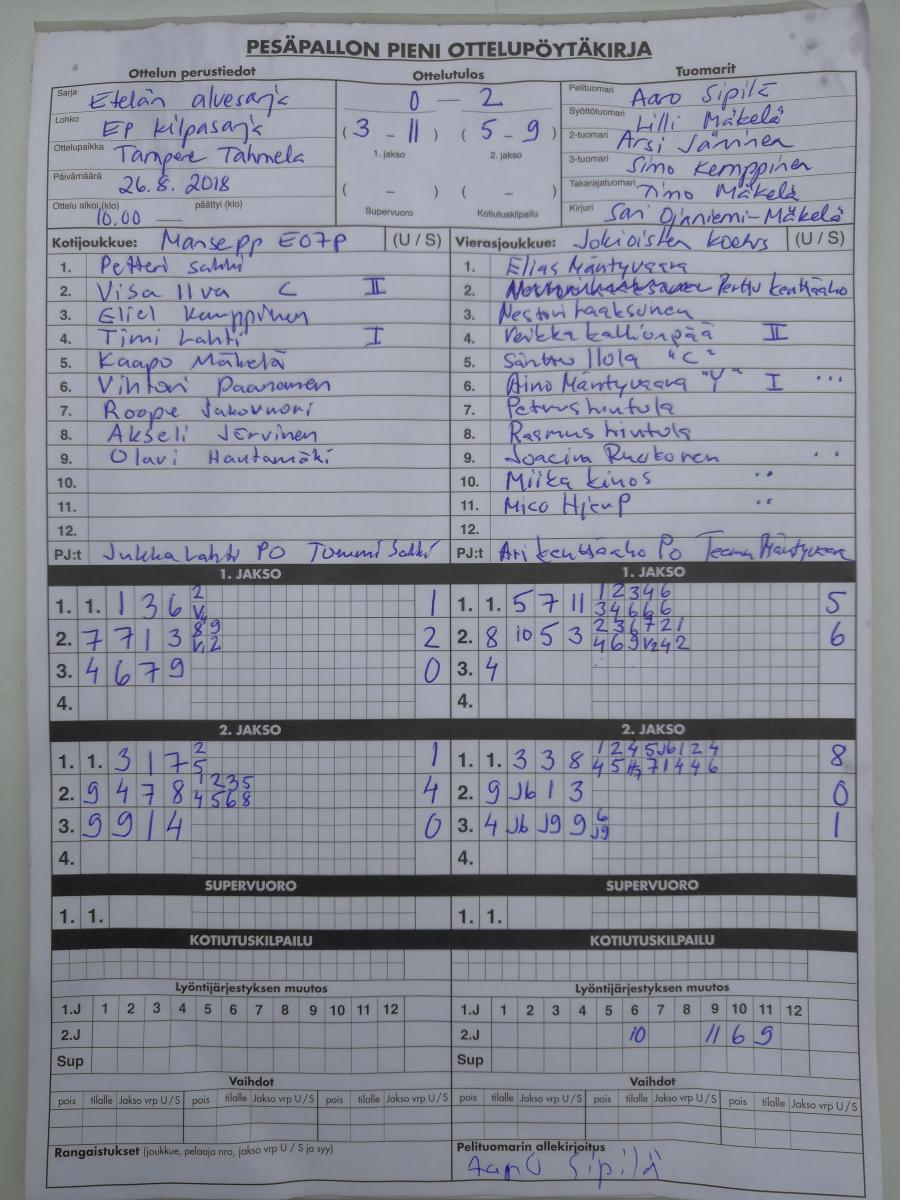 PESÄPALLON PIENI OTTELUPÖYTÄKIRJA
Ottelun perustiedot Ottelutulos Tuomarit
Sarja Etelän aluesarja
Lohko EP kilpasarja
Ottelupaikka Tampere Tahmela
Päivämäärä 26.8.2018
Ottelu alkoi (klo) 10.00 — päättyi (klo)
0 — 2
(3 - 11) (5 - 9)
1. jakso 2. jakso
( - ) ( - )
Supervuoro Kotiutuskilpailu
Pelituomari Aaro Sipilä
Syöttötuomari Lilli Mäkelä
2-tuomari Arsi Järvinen
3-tuomari Simo Kemppinen
Takarajatuomari Timo Mäkelä
Kirjuri Sari Ojanniemi-Mäkelä
Kotijoukkue: Mansepp E07P (U / S)
1. Petteri Salmi
2. Visa Ilva C II
3. Eliel Kemppinen
4. Timi Lahti I
5. Kaapo Mäkelä
6. Vihtori Paananen
7. Roope Jakovuori
8. Akseli Järvinen
9. Olavi Hautamäki
10.
11.
12.
PJ:t Jukka Lahti PO Tommi
Vierasjoukkue: Jokioisten Koetus (U / S)
1. Elias Mäntyvaara
2. Perttu Kentsaaho
3. Nestori Laaksonen
4. Veikka Kallionpää II
5. Santtu Ilola "C"
6. Aino Mäntyvaara "Y" I ...
7. Petrus Hintula
8. Rasmus Hintula
9. Joacim Ruokonen ..
10. Miika Kinos ..
11. Mico Hjerp ..
12.
PJ:t Ari Kentsaaho PO Teemu Mäntyvaara
1. JAKSO
1. 1. 1 3 6 2 1
V4
2. 7 7 1 3 8 9 2
V, 2
3. 4 6 7 9 0
4.
1. JAKSO
1. 1. 5 7 11 1 2 3 4 6 5
3 4 6 6 6
2. 8 10 5 3 2 3 6 7 2 1 6
4 6 9 V2 4 2
3. 4
4.
2. JAKSO
1. 1. 3 1 7 2 1
5
2. 9 4 7 8 1 2 3 5 4
4 5 6 8
3. 9 9 1 4 0
4.
2. JAKSO
1. 1. 3 3 8 1 2 4 5 J6 1 2 4 8
4 5 7 1 4 4 6
2. 9 J6 1 3 0
3. 4 J6 J9 9 6 1
J9
4.
SUPERVUORO
1. 1.
SUPERVUORO
1. 1.
KOTIUTUSKILPAILU
KOTIUTUSKILPAILU
Lyöntijärjestyksen muutos
1.J 1 2 3 4 5 6 7 8 9 10 11 12
2.J
Sup
Lyöntijärjestyksen muutos
1.J 1 2 3 4 5 6 7 8 9 10 11 12
2.J 10 11 6 9
Sup
Vaihdot
pois tilalle Jakso vrp U / S pois tilalle Jakso vrp U / S pois tilalle Jakso vrp U / S
Vaihdot
pois tilalle Jakso vrp U / S pois tilalle Jakso vrp U / S pois tilalle Jakso vrp U / S
Rangaistukset (joukkue, pelaaja nro, jakso vrp U / S ja syy)
Pelituomarin allekirjoitus
Aaro Sipilä